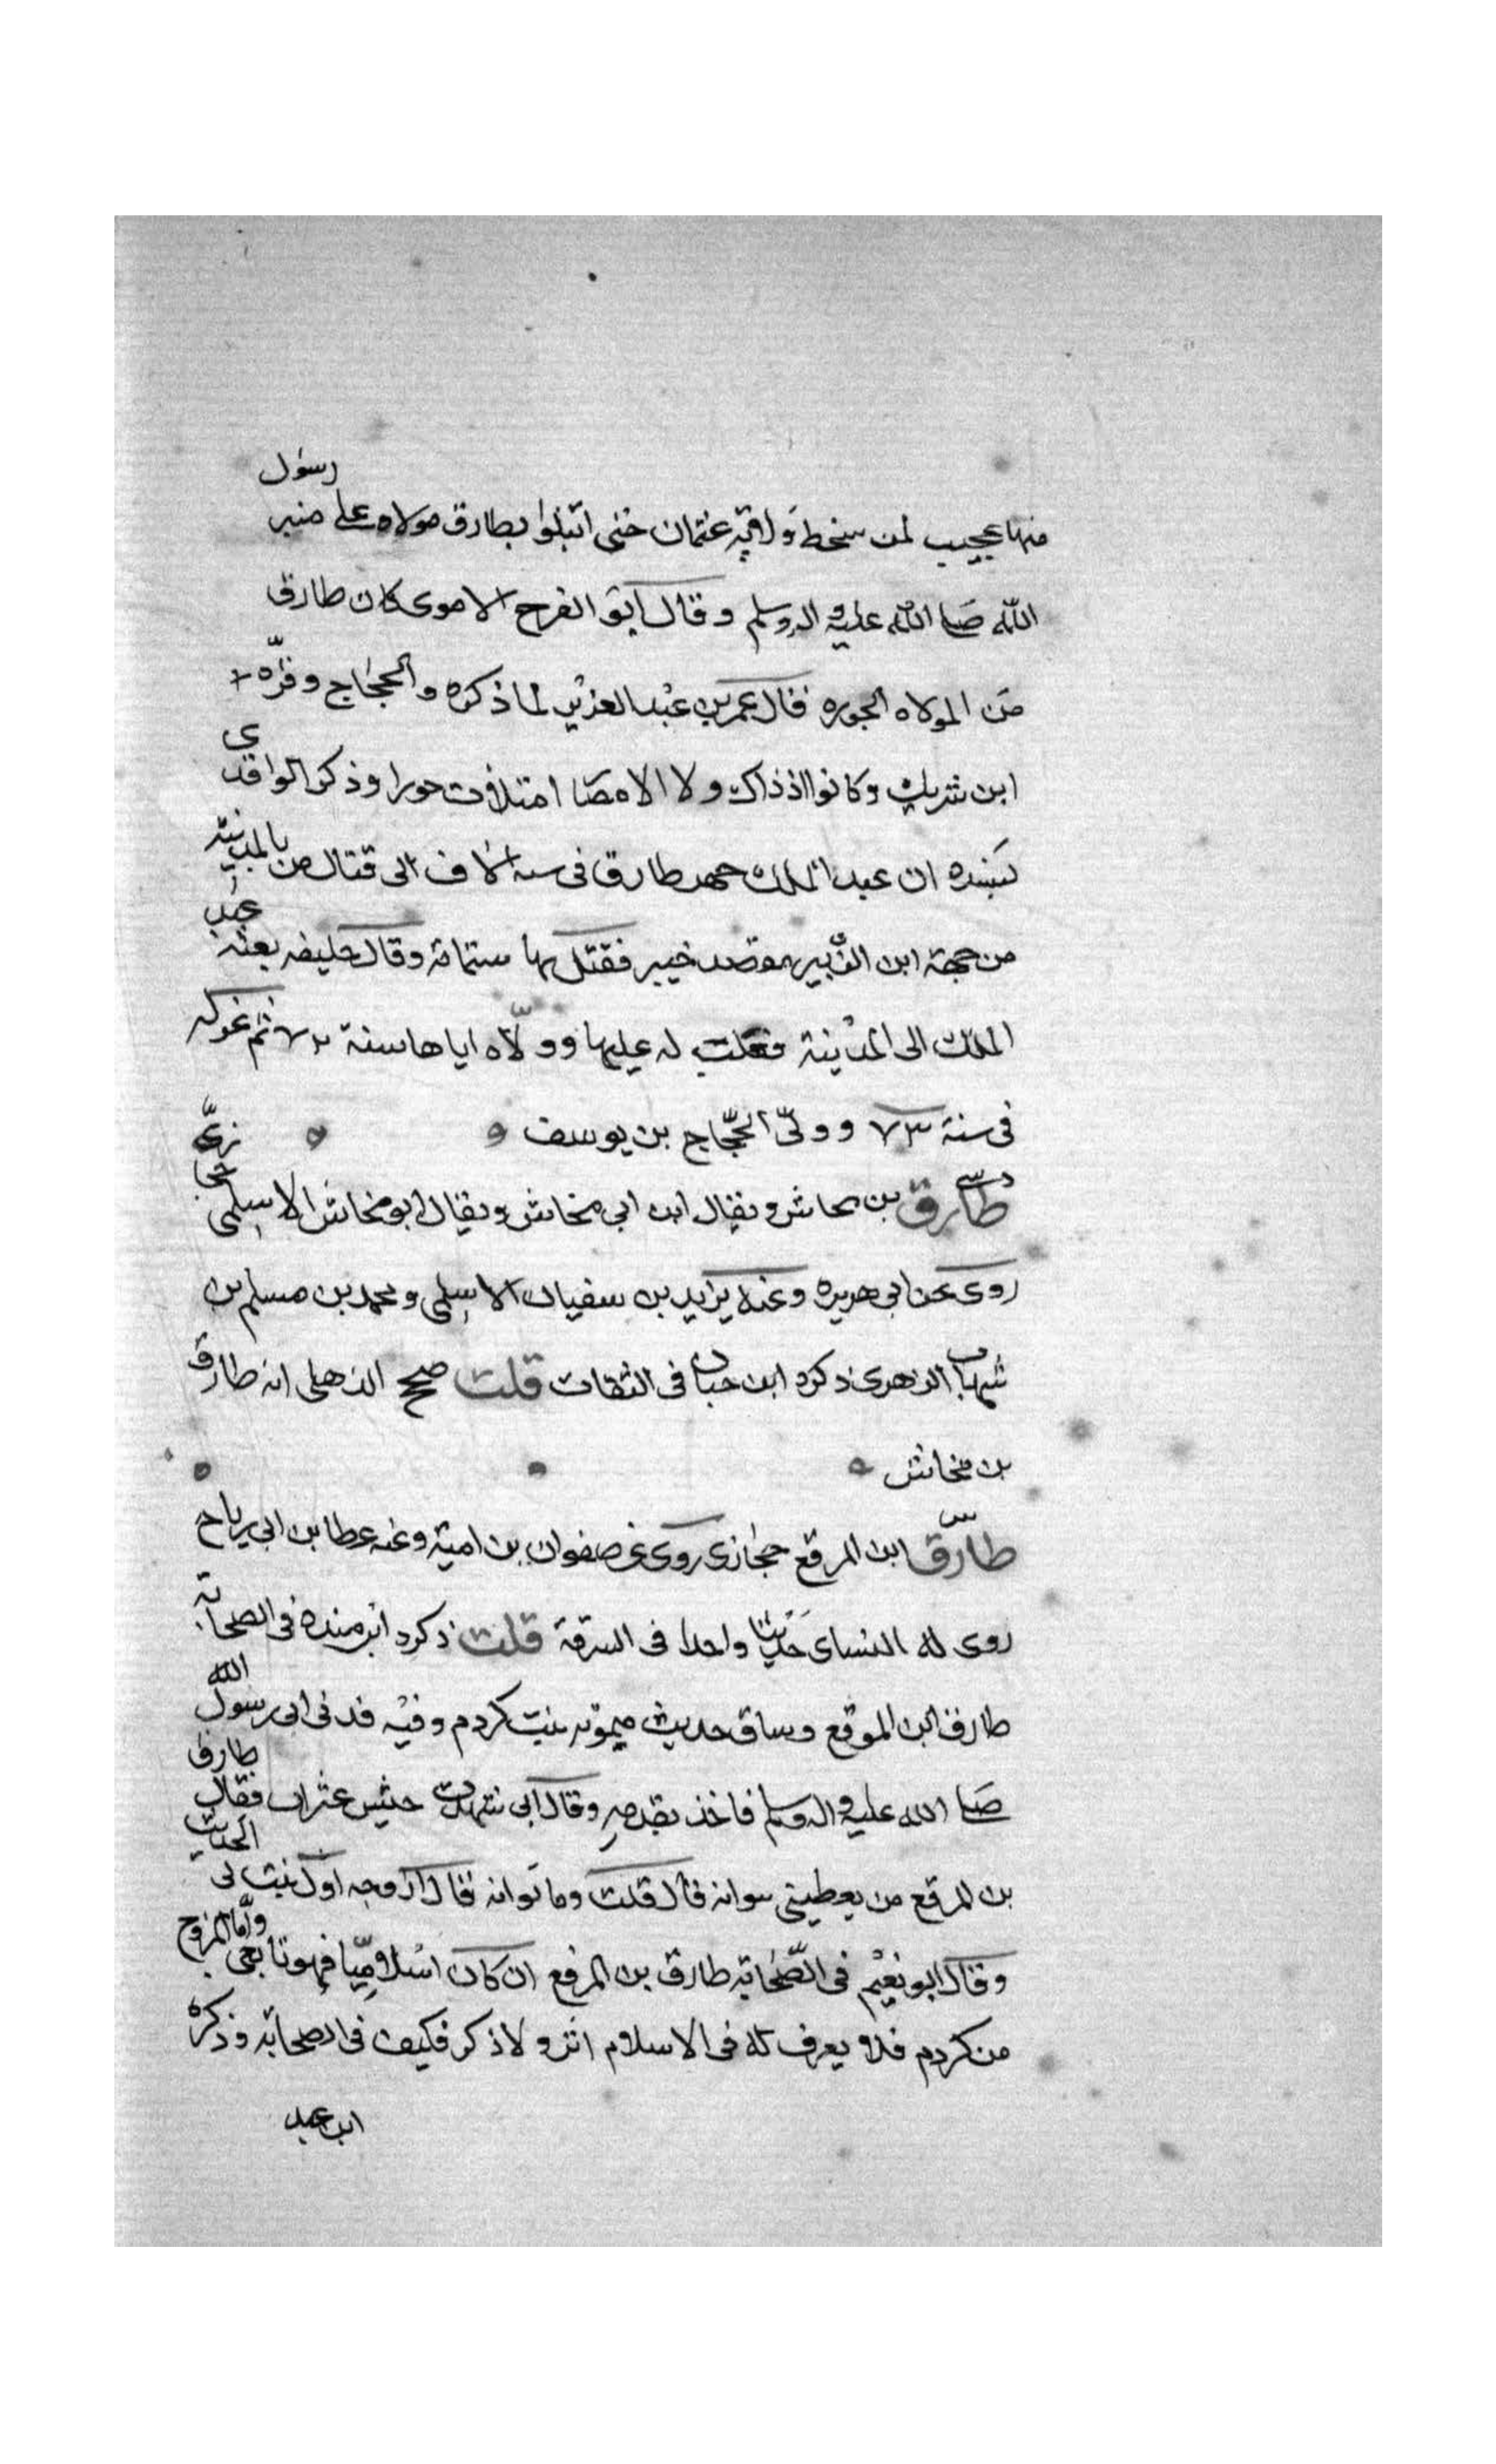 منها عجيب لمن سخط ولاية عثمان حتى ابتلوا بطارق مولاه على منبر رسول
الله صلى الله عليه واله وسلم وقال ابو الفرج الاموى كان طارق
من الولاه الجوره فقال عمر بن عبد العزيز لما ذكره والحجاج وقره
ابن شريك وكانوا اذ ذاك ولا الامصا امتلات جورا وذكر الواقدى
بسنده ان عبد الملك جهد طارق فى ستة الاف الى قتال من بالمدينة
من جهة ابن الزبير فقصد خيبر فقتل بها ستمائة وقال خليفه بعثه عبد
الملك الى المدينة فغلب له عليها وولاه اياها سنة ٧٢ ثم عزله
فى سنة ٧٣ وولى الحجاج بن يوسف
د سى طارق بن مخاش ويقال ابن ابى مخاش ويقال ابو مخاش الاسلمى حجازى
روى عن ابى هريره وعنه يزيد بن سفيان الاسلمى ومحمد بن مسلم بن
شهاب الزهرى ذكره ابن حبان فى الثقات قلت صحح الذهلى انه طارق
بن مخاش
س طارق ابن المرقع حجازى روى عن صفوان بن امية وعنه عطا بن ابى رباح
روى له النساى حديثا واحدا فى السرقة قلت ذكره ابن منده فى الصحابة
طارق ابن الموقع وساق حديث ميمونه بنت كردم وفيه فدنى ابى رسول الله
صلى الله عليه واله وسلم فاخذ بقدمه وقال انى شهدت جيش عثران فقال طارق
بن المرقع من يعطينى سوانه قال قلت وما توانه قال ازوجه اول بنت لى الحديث
وقال ابو نعيم فى الصحابة طارق بن المرقع ان كان اسلاميا فهو تابعى واما المزوج
من كردم فلا يعرف له فى الاسلام اثر ولا ذكر فكيف فى الصحابه وذكره
ابن عبد